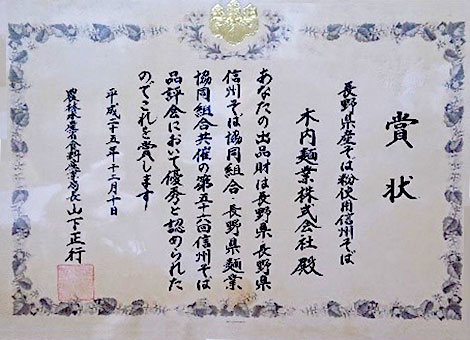 賞状
長野県産そば粉使用信州そば
木内麺業株式会社 殿
あなたの出品財は長野県・長野県
信州そば協同組合・長野県麺業
協同組合共催の第五十六回信州そば
品評会において優秀と認められた
のでこれを賞します
平成二十五年十二月十日
農林水産省食料産業局長 山下正行